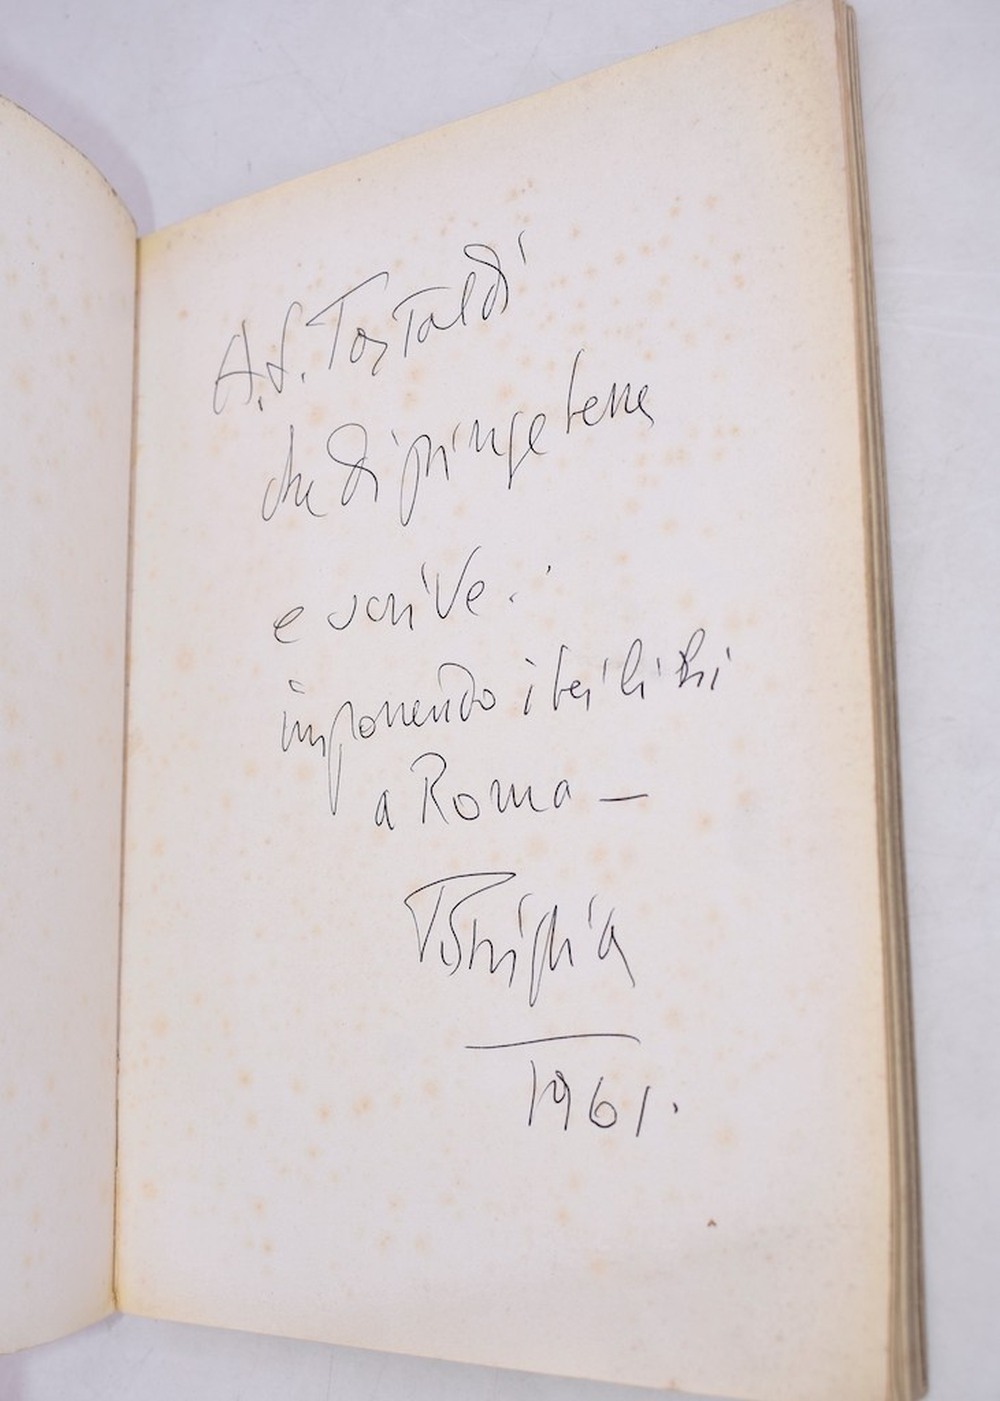 A S. Tostaldi
che dipinge bene
e scrive.
imponendo i bei libri
a Roma —
1961.